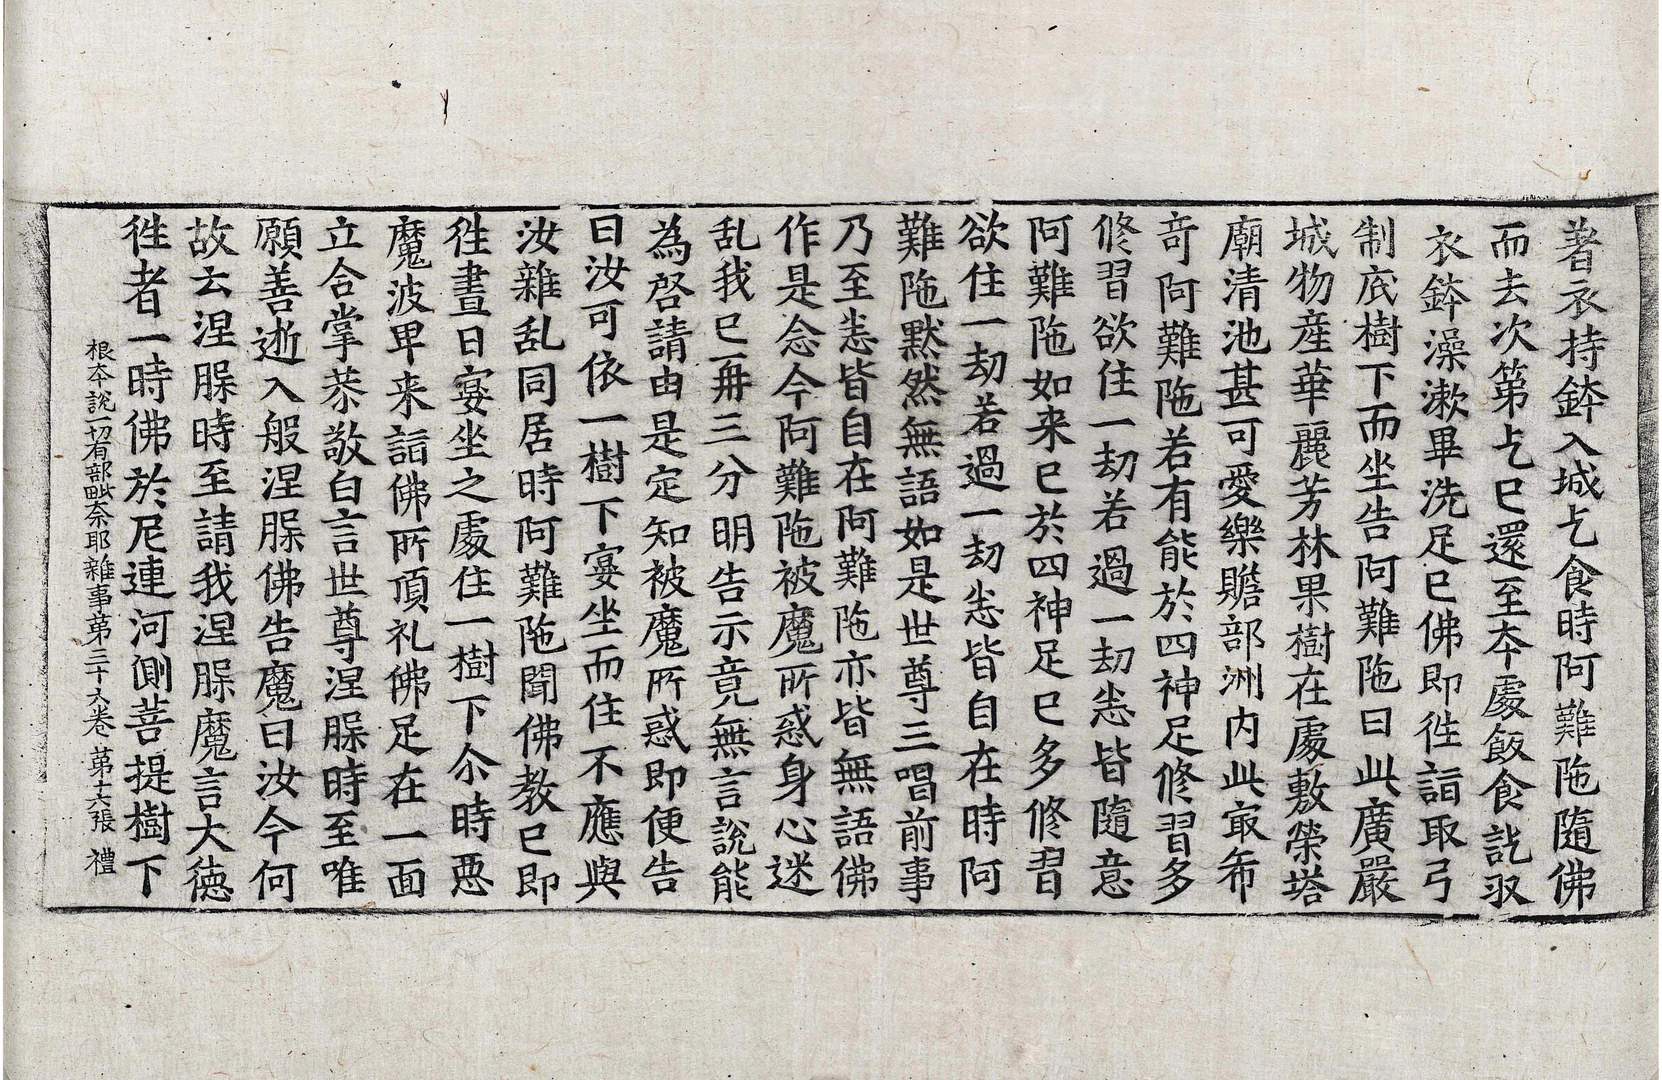 著衣持鉢入城乞食時阿難陁隨佛
而去次第乞已還至夲處飯食訖収
衣鉢澡漱畢洗足已佛即徃詣取弓
制底樹下而坐告阿難陁曰此廣嚴
城物産華麗芳林果樹在處敷榮塔
廟清池甚可愛樂贍部洲内此㝡希
竒阿難陁若有能於四神足修習多
修習欲住一劫若過一劫悉皆隨意
阿難陁如来已於四神足已多修習
欲住一劫若過一劫悉皆自在時阿
難陁默然無語如是世尊三唱前事
乃至悉皆自在阿難陁亦皆無語佛
作是念今阿難陁被魔所惑身心迷
乱我已再三分明告示竟無言說能
為啓請由是定知被魔所惑即便告
曰汝可依一樹下宴坐而住不應與
汝雜乱同居時阿難陁聞佛教已即
徃晝日宴坐之處住一樹下尒時惡
魔波卑来詣佛所頂礼佛足在一面
立合掌恭敬白言世尊涅槃時至唯
願善逝入般涅槃佛告魔曰汝今何
故云涅槃時至請我涅槃魔言大徳
徃者一時佛於尼連河側菩提樹下
根本說一切有部毗奈耶雜事第三十六卷 第十六張 禮